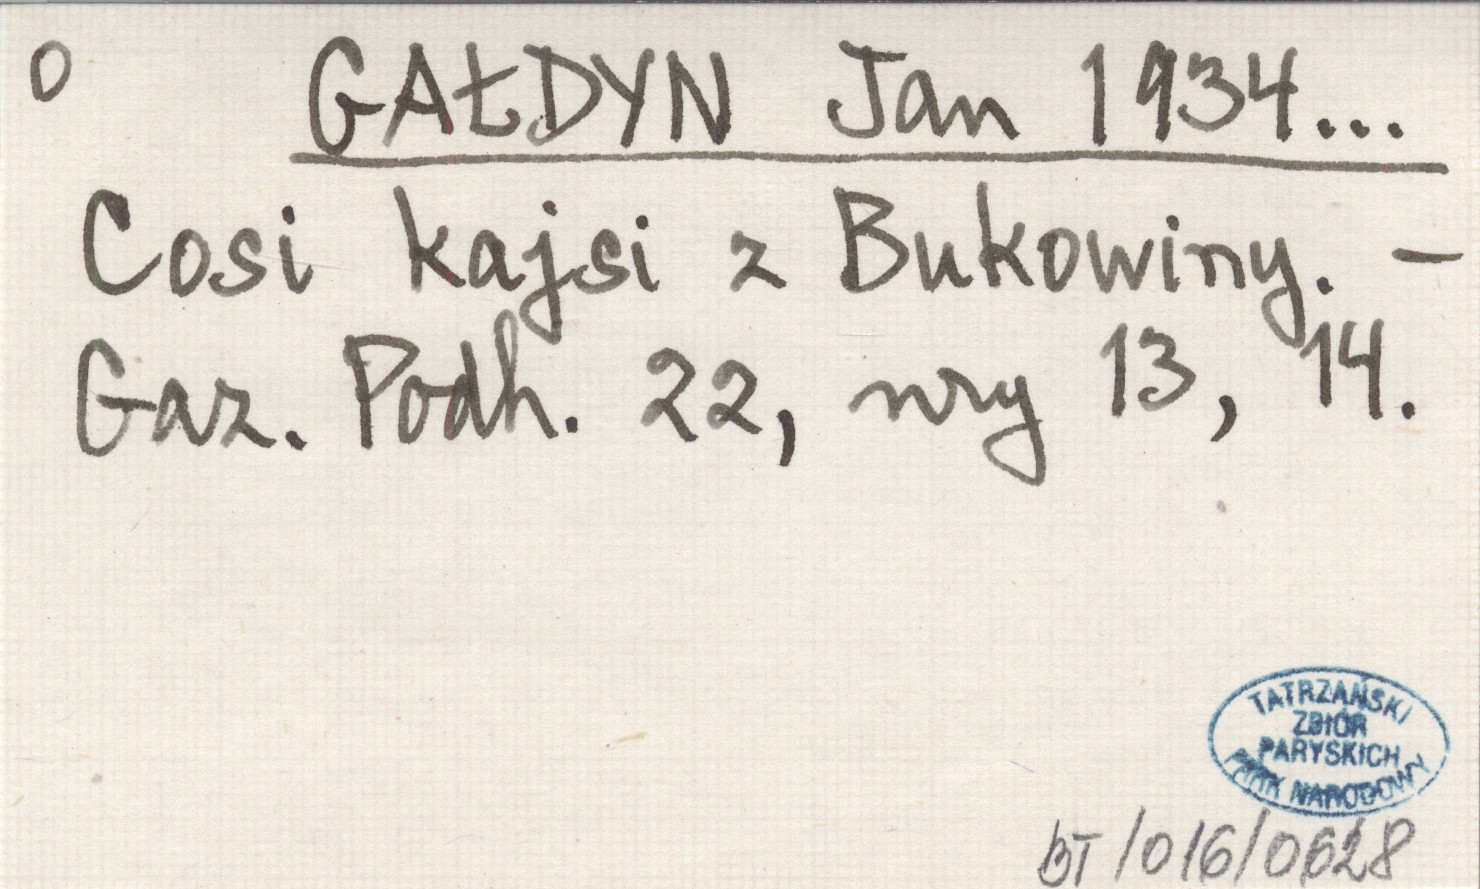 O GAŁDYN Jan 1934...
Cosi kajsi z Bukowiny. –
Gaz. Podh. 22, nry 13, 14.
TATRZAŃSKI
ZBIÓR
PARYSKICH
PARK NARODOWY
BT/016/0628